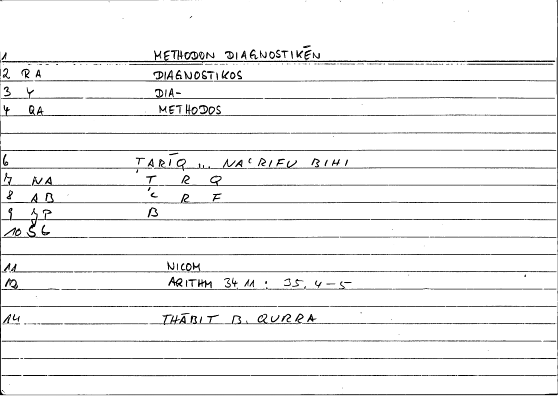 1 METHODON DIAGNOSTIKĒN
2 RA DIAGNOSTIKOS
3 Y DIA-
4 QA METHODOS
6 ṬARĪQ ... NAʿRIFU BIHI
7 NA Ṭ R Q
8 AB ʿ R F
9 JP B
10 S6
11 NICOM
12 ARITHM 34.11 : 35.4-5
14 THĀBIT B. QURRA